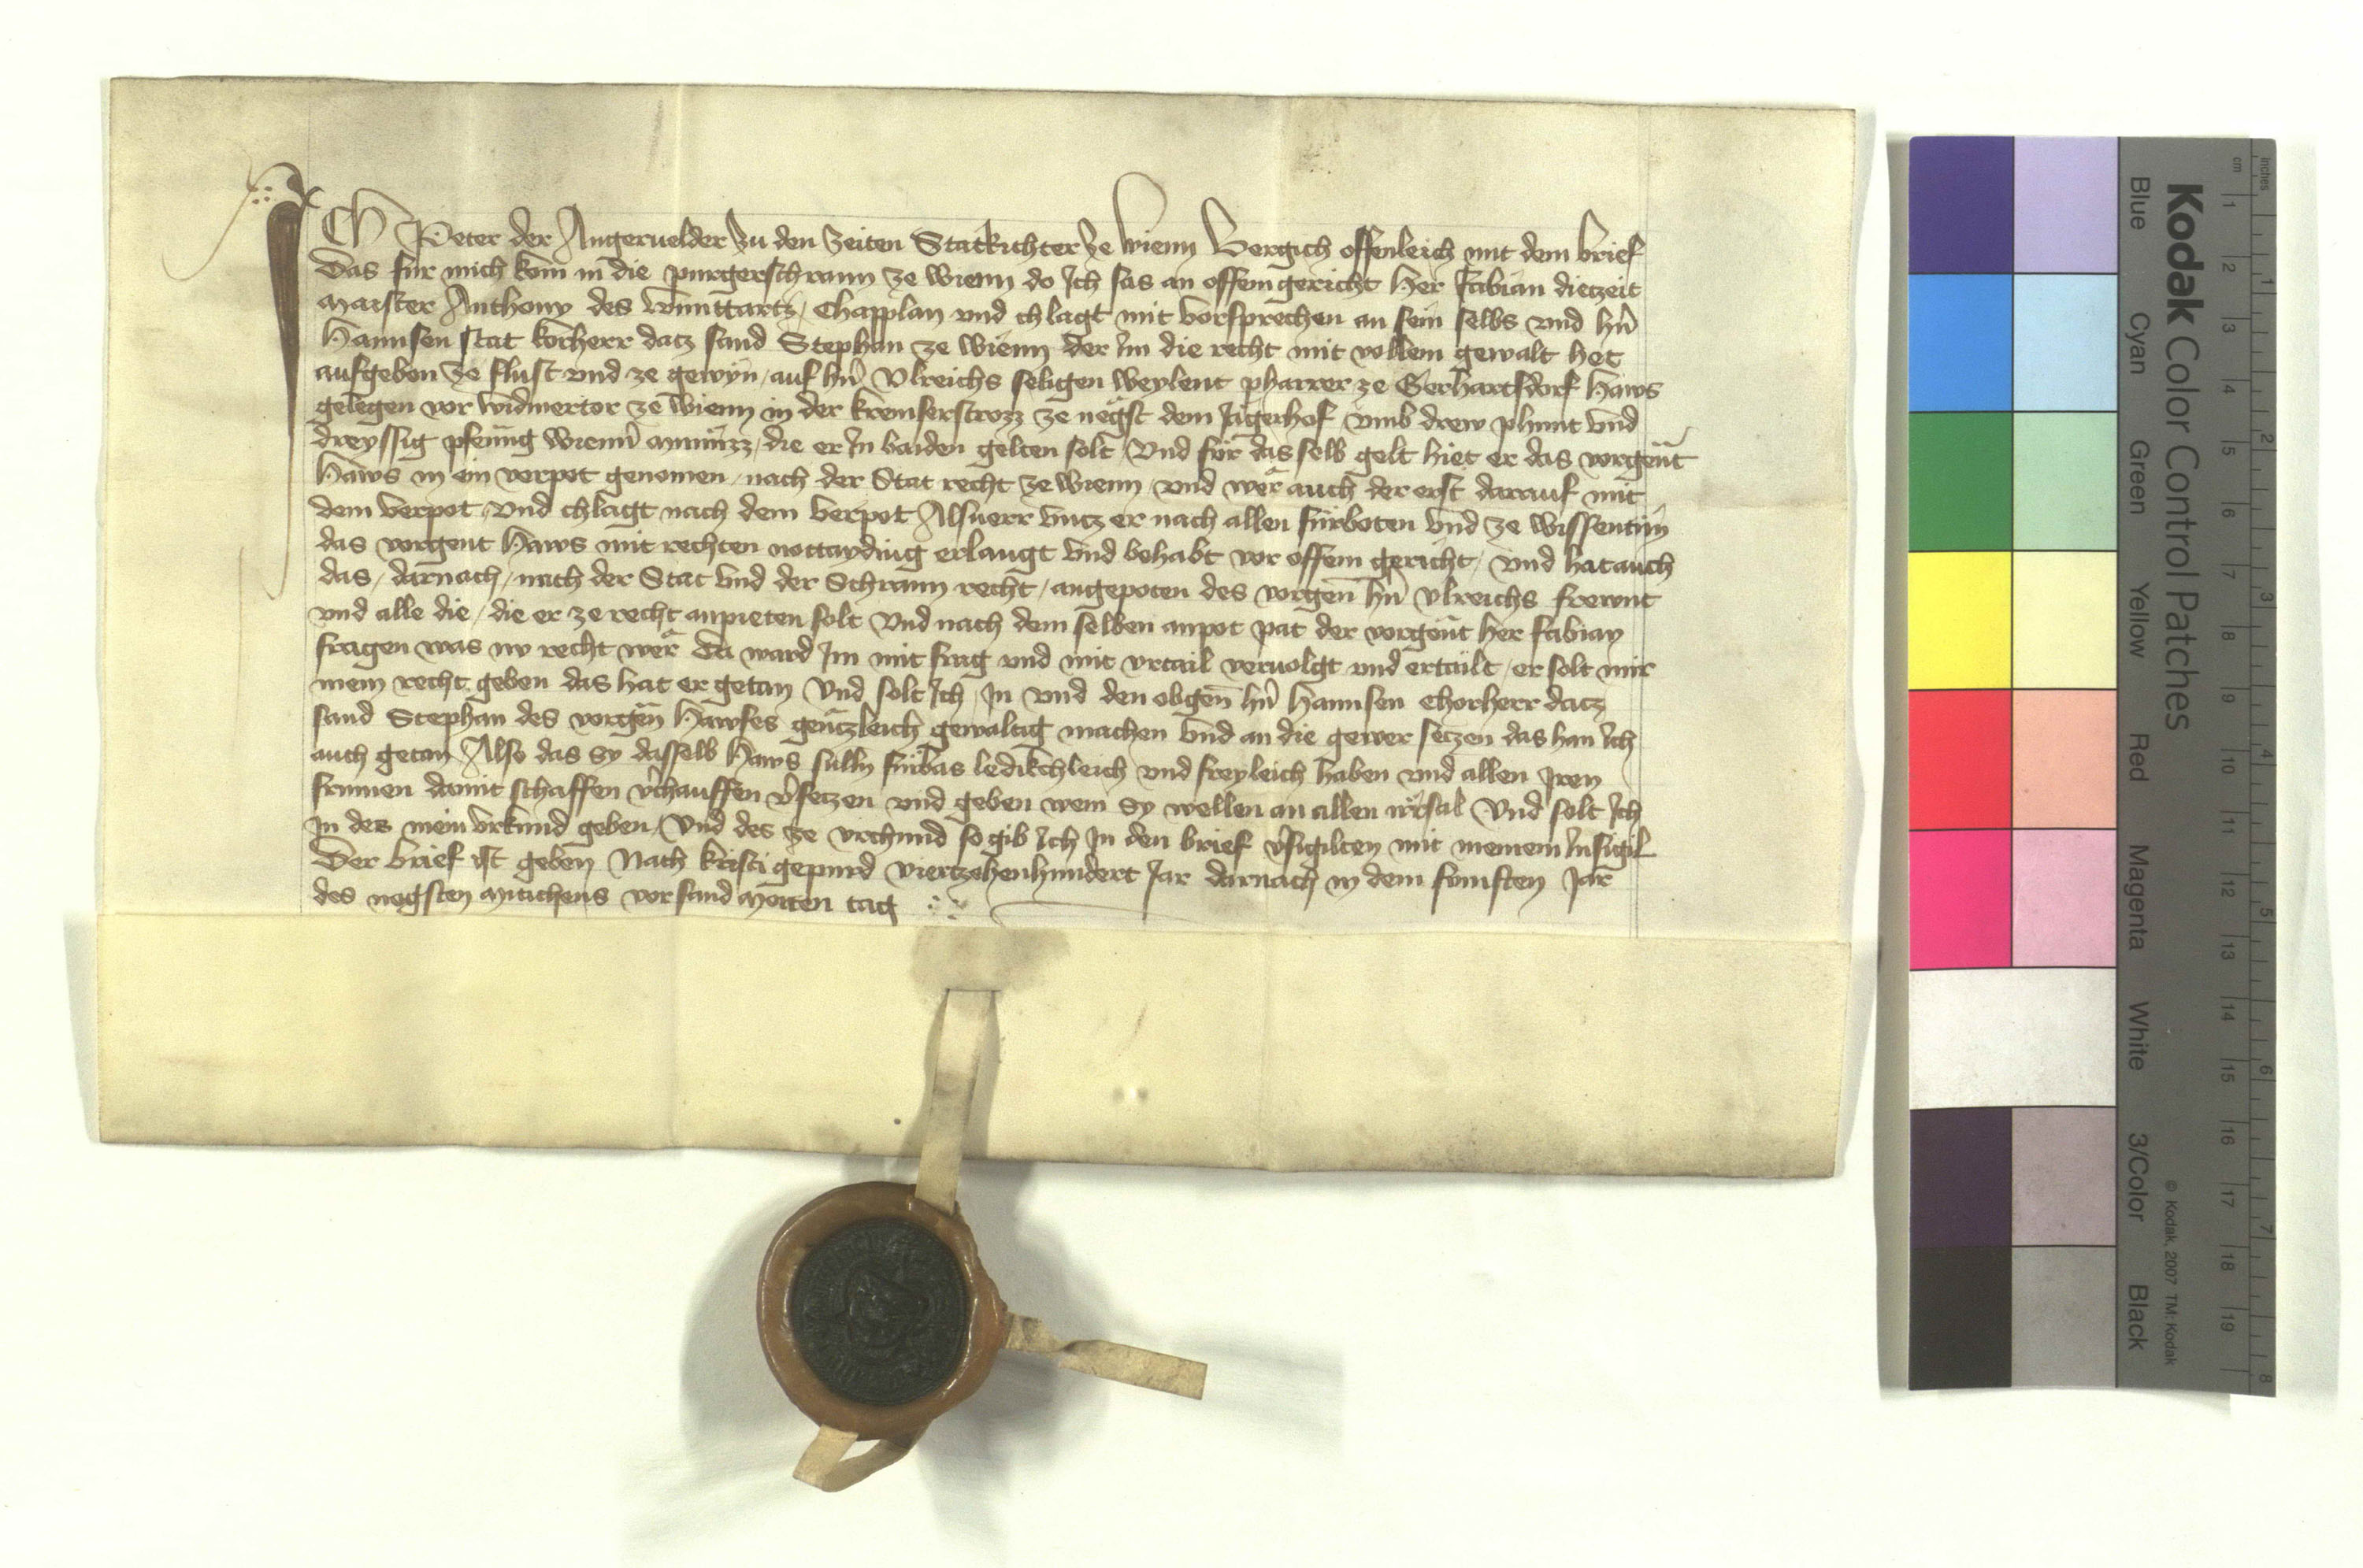 ICH Peter der Angervelder zu den zeiten Statrichter ze wienn Vergich offenleich mit dem brief
Das fur mich kom in die purgerschrann ze wienn do Ich sas an offem gericht her Fabian diezeit
Maister Anthony des wunttartz Chapplan vnd chlagt mit vorsprechen an sein selbs vnd hn̄
Hannsen stat korherr datz sand Stephan ze wienn der im die recht mit vollem gewalt het
aufgeben ze flust vnd ze gewyn / auf hn̄ Vlreichs seligen weylent pharrer ze Gerhartsdorf haws
gelegen vor widmertor ze wienn in der kremserstrozz ze negst dem Jagerhof / vmb drew phunt vnd
dreyssig pfenīg wienn̄ mūnizz / die er In baiden gelten solt / Vnd fur das selb gelt hiet er das vorgeñt
Haws in ein verpot genomen / nach der Stat recht ze wienn / vnd wer auch der erst darauf mit
dem verpot / vnd chlagt nach dem verpot Alsuerr vntz er nach allen fürboten vnd ze wissentūm
das vorgent Haws mit rechten nottayding erlangt vnd behabt vor offem gericht / vnd hat auch
das / darnach / nach der Stat vnd der Schrann recht / angepoten des vorgen̄ hn̄ Vlreichs frewnt
vnd alle die / die er ze recht anpieten solt Vnd nach dem selben anpot pat der vorgeñt her Fabian
fragen was nv recht wer Da ward Im mit frag vnd mit vrtail veruolgt vnd ertailt / er solt mir
mein recht geben das hat er getan Vnd solt Ich / In vnd den obgen̄ hn̄ Hannsen Chorherr datz
sand Stephan des vorgen̄ Hawses gentzleich gewaltig machen vnd an die gewer setzen das han Ich
auch getan Also das sy dasselb Haws sulln fürbas ledikchleich vnd freyleich haben vnd allen Iren
frumen damit schaffen v̄chauffen v̄setzen vnd geben wem sy wellen an allen irrsal Vnd solt Ich
In des mein vrkund geben / Vnd des ze vrchund so gib Ich In den brief v̄sigilten mit meinem Insigil
Der brief ist geben Nach kristi gepurd viertzehenhundert Iar darnach in dem fumften Jar
des negsten Mitichens vor sand Merten tag
Kodak Color Control Patches
Blue Cyan Green Yellow Red Magenta White 3/Color Black
© Kodak, 2007 TM: Kodak
cm 1 2 3 4 5 6 7 8 9 10 11 12 13 14 15 16 17 18 19
inches 1 2 3 4 5 6 7 8